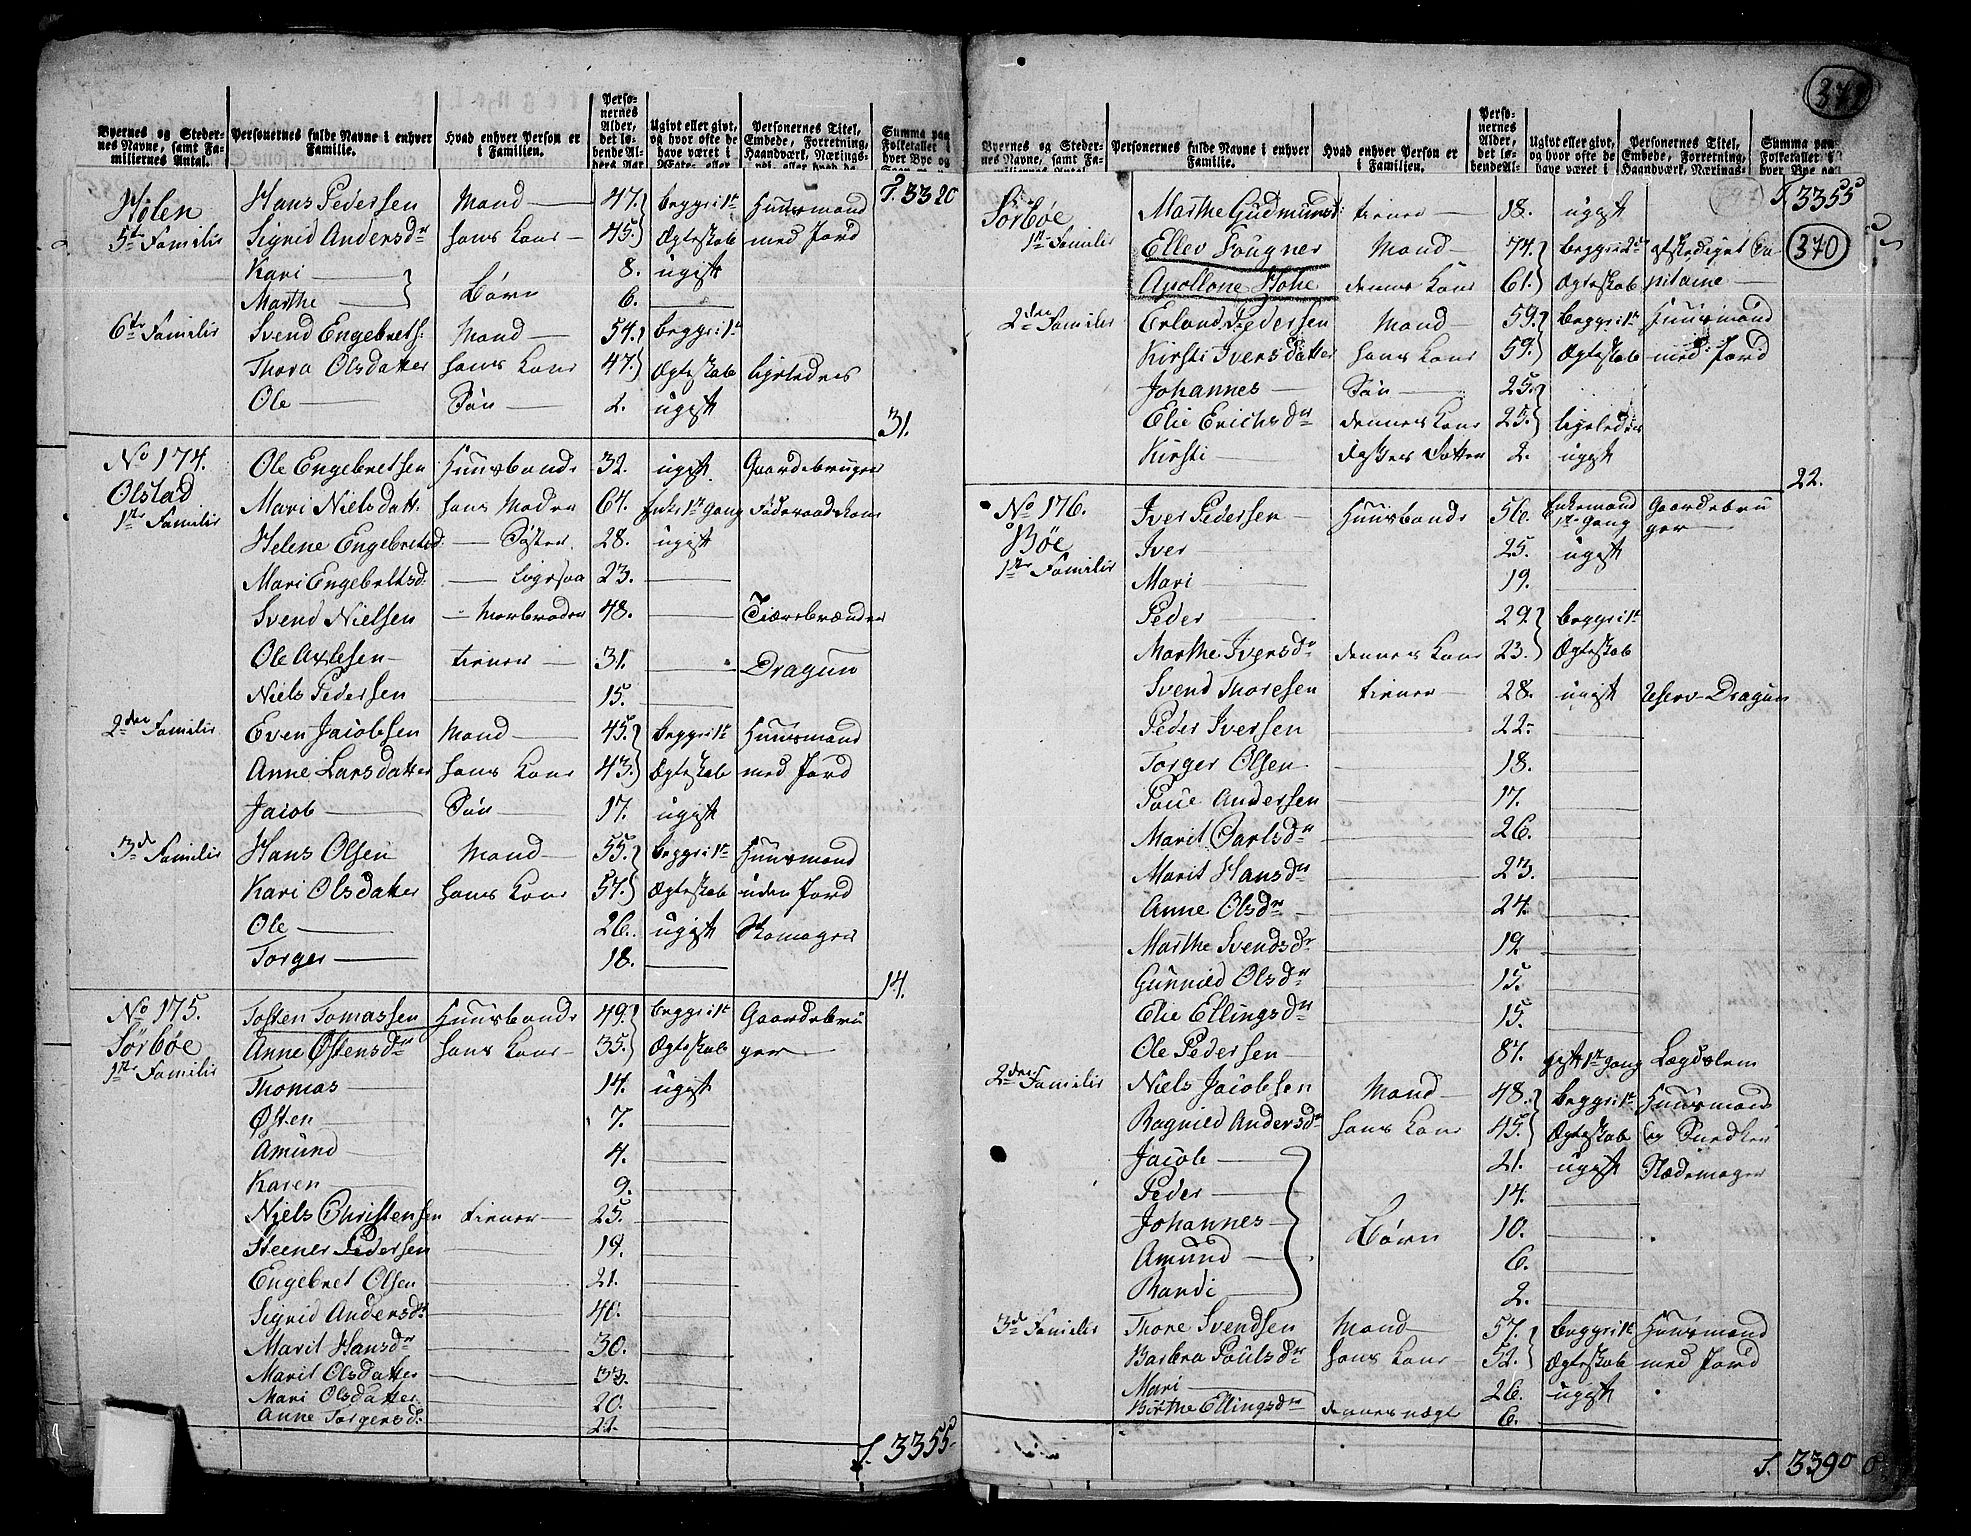 Byernes og Steder-
nes Navne, samt Fa-
miliernes Antal. Personernes fulde Navne i enhver
Familie. Hvad enhver Person er
i Familien. Perso-
nernes
Alder,
det lø-
bende Aar Ugivt eller givt,
og hvor ofte de
have været i Personernes Titel,
Embede, Forretning,
Haandværk, Nærings- Summa paa
Folketallet i
hver Bye og
T. 3320
Holen Hans Pedersen Mand 47. begge i 1te Huusmand
5te Familie Sigrid Andersdr hans Kone 45. Ægteskab med Jord
Kari 8. ugift
Marthe Børn 6.
6te Familie Svend Engebrets: Mand 54. begge i 1te
Thora Olsdatter hans Kone 47. Ægteskab ligeledes
Ole Søn 2. ugift
31.
No 174. Ole Engebretsen Huusbonde 32. ugift Gaardebruger
Olstad Mari Nielsdatt. hans Moder 64. Enke 1te Gang Föderaadskone
1ste Familie Helene Engebretsd. Søster 28. ugift
Mari Engebretsd. Ligesaa 23.
Svend Nielsen Morbroder 48. Tiærebrænder
Ole Axlesen tiener 31. Dragun
Niels Pedersen 15.
2den Familie Even Jacobsen Mand 45. begge i 1te Huusmand
Anne Larsdatter hans Kone 43. Ægteskab med Jord
Jacob Søn 17. ugift
3de Familie Hans Olsen Mand 55. begge i 1te Huusmand
Kari Olsdatter hans Kone 57. Ægteskab uden Jord
Ole 26. ugift Skomager
Torger 18.
14.
No 175. Tosten Tomassen Huusbonde 49. begge i 1te Gaardebru
Sörböe Anne Østensdr hans Kone 35. Ægteskab ger
1ste Familie Thomas 14. ugift
Østen 7.
Amund 4.
Karen 9.
Niels Christensen tiener 25.
Steener Pedersen 19.
Engebret Olsen 21.
Sigrid Andersdr 40.
Marit Hansdr 30.
Marit Olsdatter 33.
Mari Olsdatter 20.
Anne Torgersd. 22.
T. 3355
370
Byernes og Steder-
nes Navne, samt Fa-
miliernes Antal Personernes fulde Navne i enhver
Familie. Hvad enhver Person er
i Familien. Perso-
nernes
Alder,
det lø-
bende Aar Ugivt eller givt,
og hvor ofte de
have været i Personernes Titel,
Embede, Forretning,
Haandværk, Nærings- Summa paa
Folketallet i
hver Bye og
T. 3355
Sörböe Marthe Gudmunsd: tiener 18. ugift
1ste Familie Ellev Fougner Mand 74. begge i 2det afskediget Ca
Apollone Hohe dennes Kone 61. Ægteskab pitaine
2den Familie Erland Pedersen Mand 59. begge i 1te Huusmand
Kirsti Iversdatter hans Kone 59. Ægteskab med Jord
Johannes Søn 25.
Elie Erichsdr dennes Kone 25. ligeledes
Kirsti disses Datter 2. ugift
22.
No 176. Iver Pedersen Huusbonde 56. Enkemand 1te Gang Gaardebru
Böe Iver 25. ugift ger
1ste Familie Mari 19.
Peder 29. begge i 1te
Marthe Iversdr dennes Kone 23. Ægteskab
Svend Thoresen tiener 28. ugift Reserv-Dragun
Peder Iversen 22.
Torger Olsen 18.
Poue Andersen 17.
Marit Carlsdr 26.
Marit Hansdr 23.
Anne Olsdr 24.
Marthe Svendsdr 19
Gunnild Olsdr 15.
Elie Ellingsdr 15.
Ole Pedersen 87. gift 1te Gang Lægdslem
2den Familie Niels Jacobsen Mand 48. begge i 1te Huusmand
Ragnild Andersdr hans Kone 45. Ægteskab og Snedker
Jacob 21. ugift Slædemager
Peder 14.
Johannes Børn 10.
Amund 6.
Randi 2.
3de Familie Thore Svendsen Mand 57. begge i 1te Huusmand
Barbra Poulsdr hans Kone 52. Ægteskab med Jord
Mari 26. ugift
Birthe Ellingsdr dennes uægte 6.
T. 3390